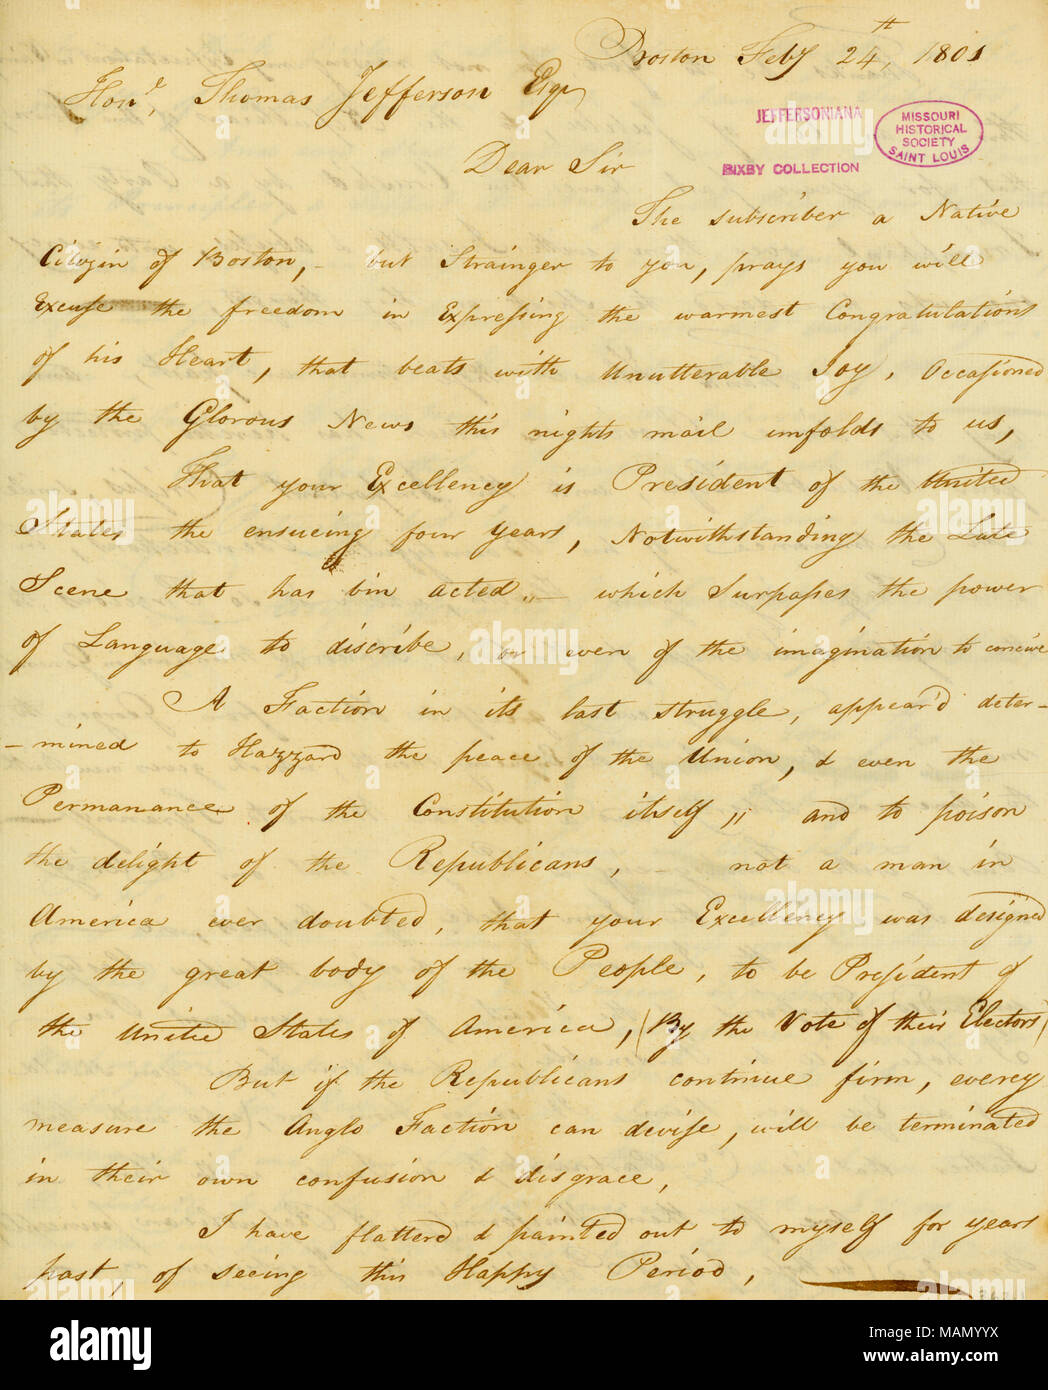 Boston Feby 24th, 1801
Hond, Thomas Jefferson Esqr
JEFFERSONIANA
MISSOURI
HISTORICAL
SOCIETY
SAINT LOUIS
BIXBY COLLECTION
Dear Sir
The subscriber a Native
Citizin of Boston, - but Strainger to you, prays you will
Excuse the freedom in Expressing the warmest Congratulations
of his Heart, that beats with Unutterable Joy, Occasioned
by the Glorous News this nights mail unfolds to us,
That your Excellency is President of the United
States the ensueing four years, Notwithstanding the Late
Scene that has bin acted, - which Surpasses the power
of Language to discribe, or even of the imagination to conceive
A Faction in its last struggle, appear'd deter-
-mined to Hazzard the peace of the Union, & even the
Permanance of the Constitution itself,; and to poison
the delight of the Republicans, - not a man in
America ever doubted, that your Excellency was designed
by the great body of the People, to be President of
the United States of America, (By the Vote of their Electors)
But if the Republicans continue firm, everey
measure the Anglo Faction can divise, will be terminated
in their own confusion & disgrace,
I have flatterd & painted out to myself for years
past, of seeing this Happy Period,
alamy
Image ID: MAMYYX
www.alamy.com